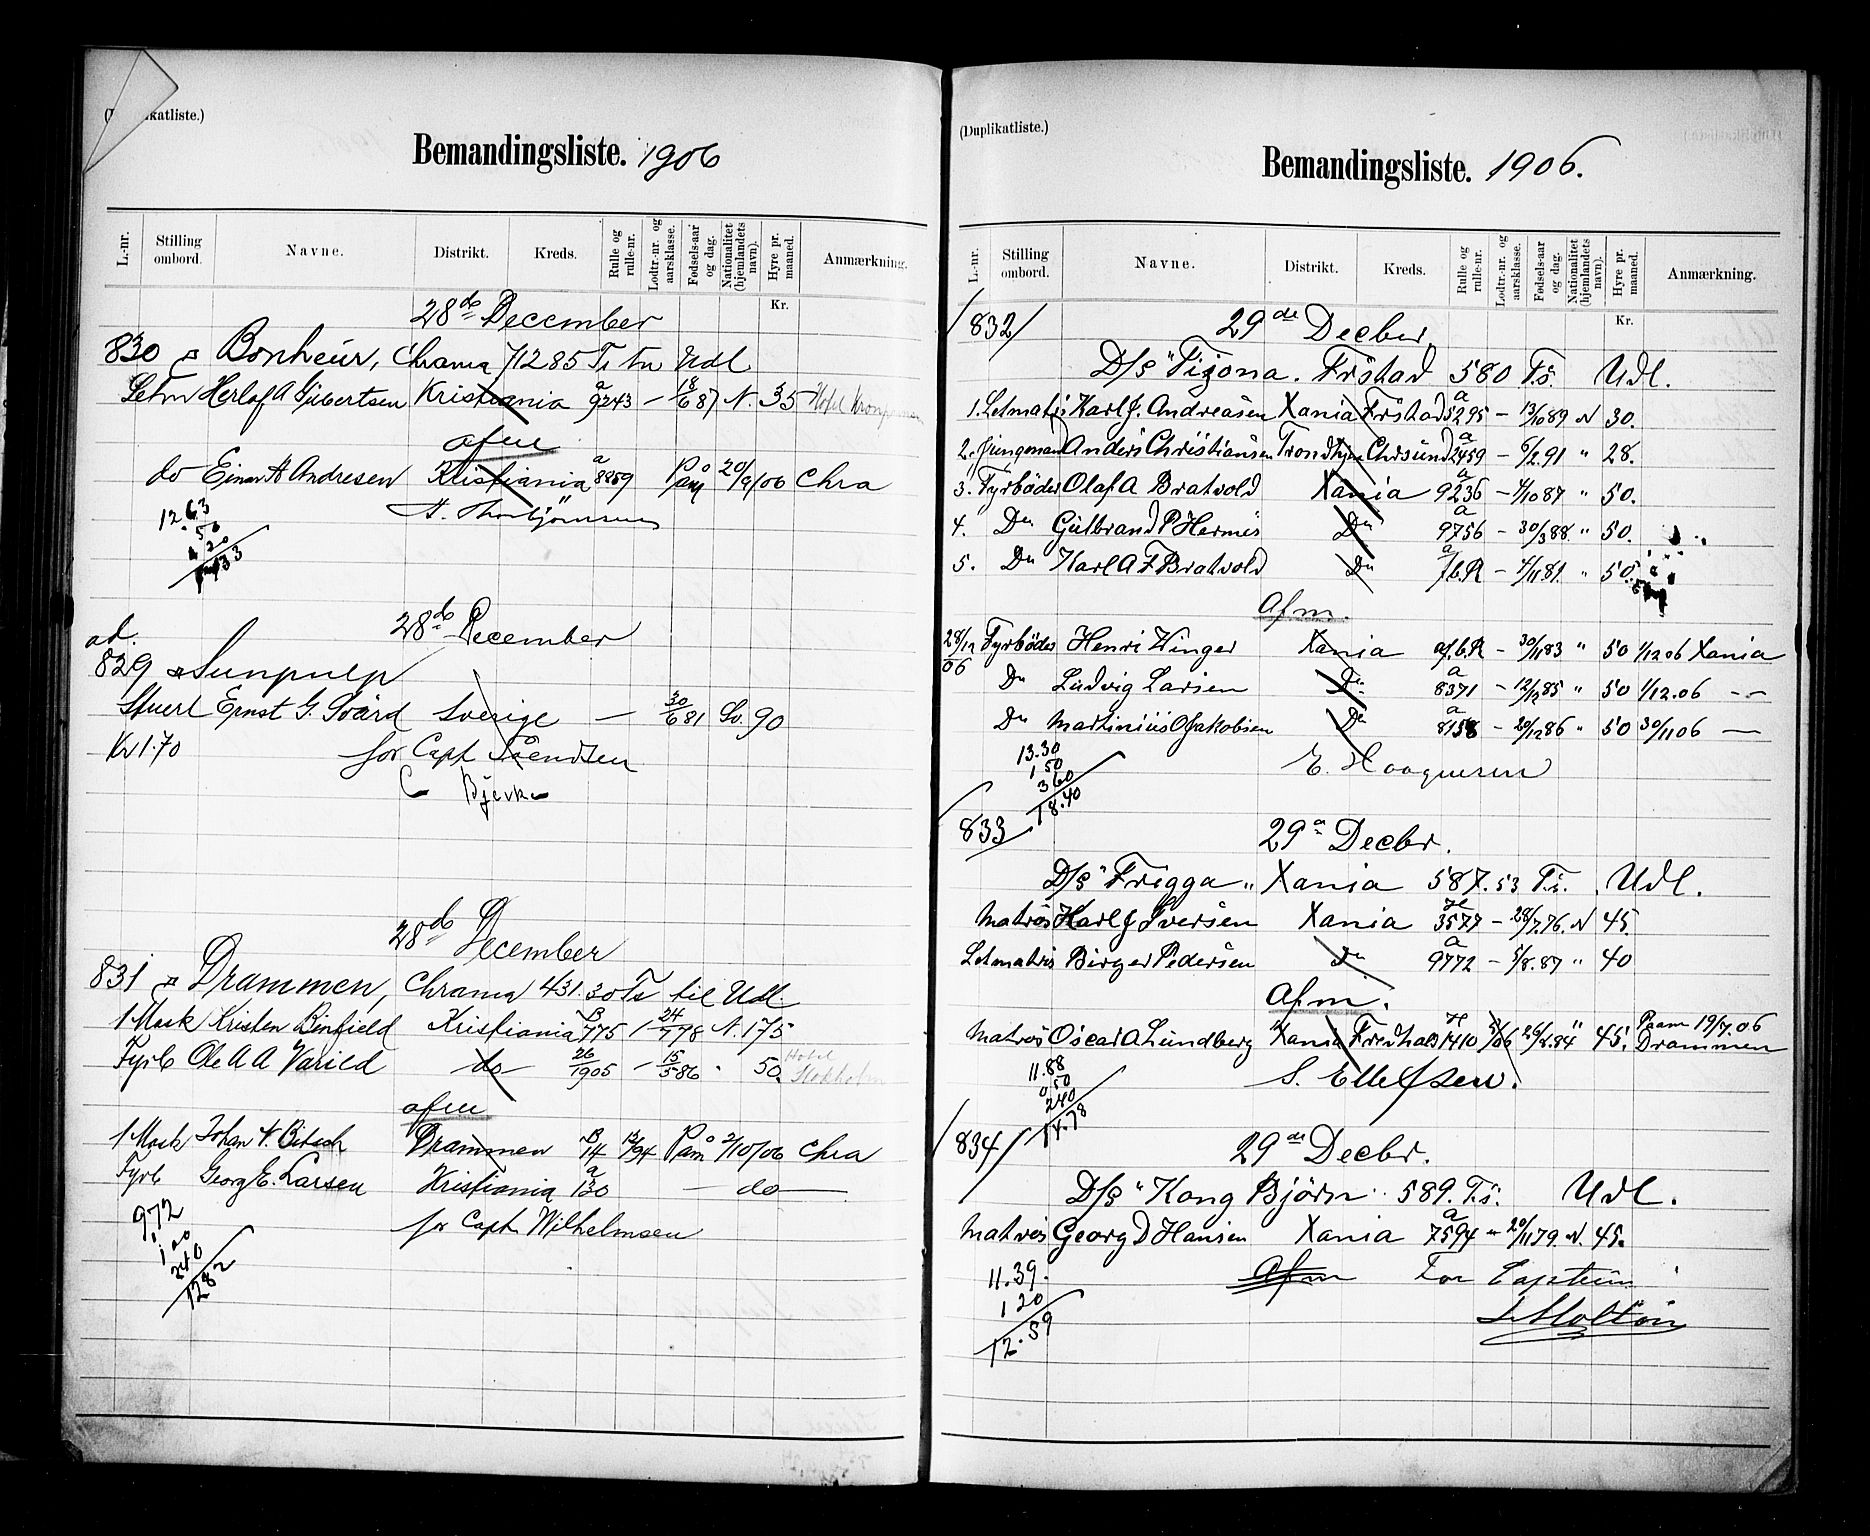 (D katliste.)
Bemandingsliste. 1906
L.-nr. Stilling ombord. Navne. Distrikt. Kreds. Rulle og rulle-nr. Lodtr.-nr. og aarsklasse. Fødsels-aar og dag. Nationalitet (hjemlandets navn). Hyre pr. maaned. Anmærkning.
Kr.
28de December
830 Bonheur, Chrania 71285 Ts Udl
Letm Herlof A Gjibertsen Kristiania a 9243 — 18/6 87 N. 35 Hotel
afm
do Einar A Andresen Kristiania a 8859 Paam 20/9/06 Chra
1263
50
420
1733
28de December
ad.
829 Sunpulp
Stuert Ernst G. Svärd Sverige — 30/6 81 Sv. 90
Kr 1.70 for Capt Svendsen
C Bjerke
28de December
831 Drammen, Chrania 431.30 Ts til Udl.
1 Mask Kristen Binfield Kristiania B 775 / 24/7 78 N. 175
Fyrb Ole A A Varild do 26/1905 — 15/5 86 50. Hotel Stokholm
afm
1 Mask Johan A. Bitsch Drammen B 14 12/94 Paam 2/10/06 Chra
Fyrb Georg E. Larsen Kristiania a 130 — do —
for Capt. Wilhelmsen
972
100
240
1282
(Duplikatliste.)
Bemandingsliste. 1906.
L.-nr. Stilling ombord. Navne. Distrikt. Kreds. Rulle og rulle-nr. Lodtr.-nr. og aarsklasse. Fødsels-aar og dag. Nationalitet (hjemlandets navn). Hyre pr. maaned. Anmærkning.
Kr.
832 29de Decbr.
D/S "Tizona. Frstad 580 Ts. Udl.
1. Letmatrs Karl J. Andreasen Xania Frstad a 5295 — 13/10 89 N 30.
2. Jungmand Anders Christiansen Trondhjem Chrsund a 2459 — 6/2.91 " 28.
3. Fyrböder Olaf A Bratvold Xania a 9236 — 4/10 87 " 50.
4. Do Gulbrand P Hermis Do a 9756 — 30/3 88. " 50.
5. Do Karl A F Bratvold Do a f.b.R — 4/11 81 " 50.
Afm.
28/12 06 Fyrböder Henri Winger Xania af.b.R — 30/11 83 " 50 1/12 06 Xania
Do Ludvig Larsen Do a 8371 — 12/12 85 " 50 1/12.06 —
Do Martinius O Jakobsen Do a 8158 — 20/12 86 " 50 30/11 06 —
13.30
1 50
3 60
18.40
E. Haagensen
833 29de Decbr.
D/S "Frigga" Xania 587.53 Ts. Udl.
Matros Karl J Iversen Xania H 3577 — 28/7.76. N 45.
Letmatrs Birger Pedersen Do a 9772 — 5/8.87 " 40
Afm.
Matros Oscar A Lundberg Xania Fredhald H 1410 5/06 26/2.84 " 45. Paam 19/7.06 Drammen
11.88
0 50
2 40
14.78
S. Ellefsen.
834 29de Decbr.
D/S "Kong Björn" 589. Ts. Udl.
Matros Georg D Hansen Xania a 7594 — 20/11 79. N. 45.
11.39.
1 20
12.59
Afm For Captein